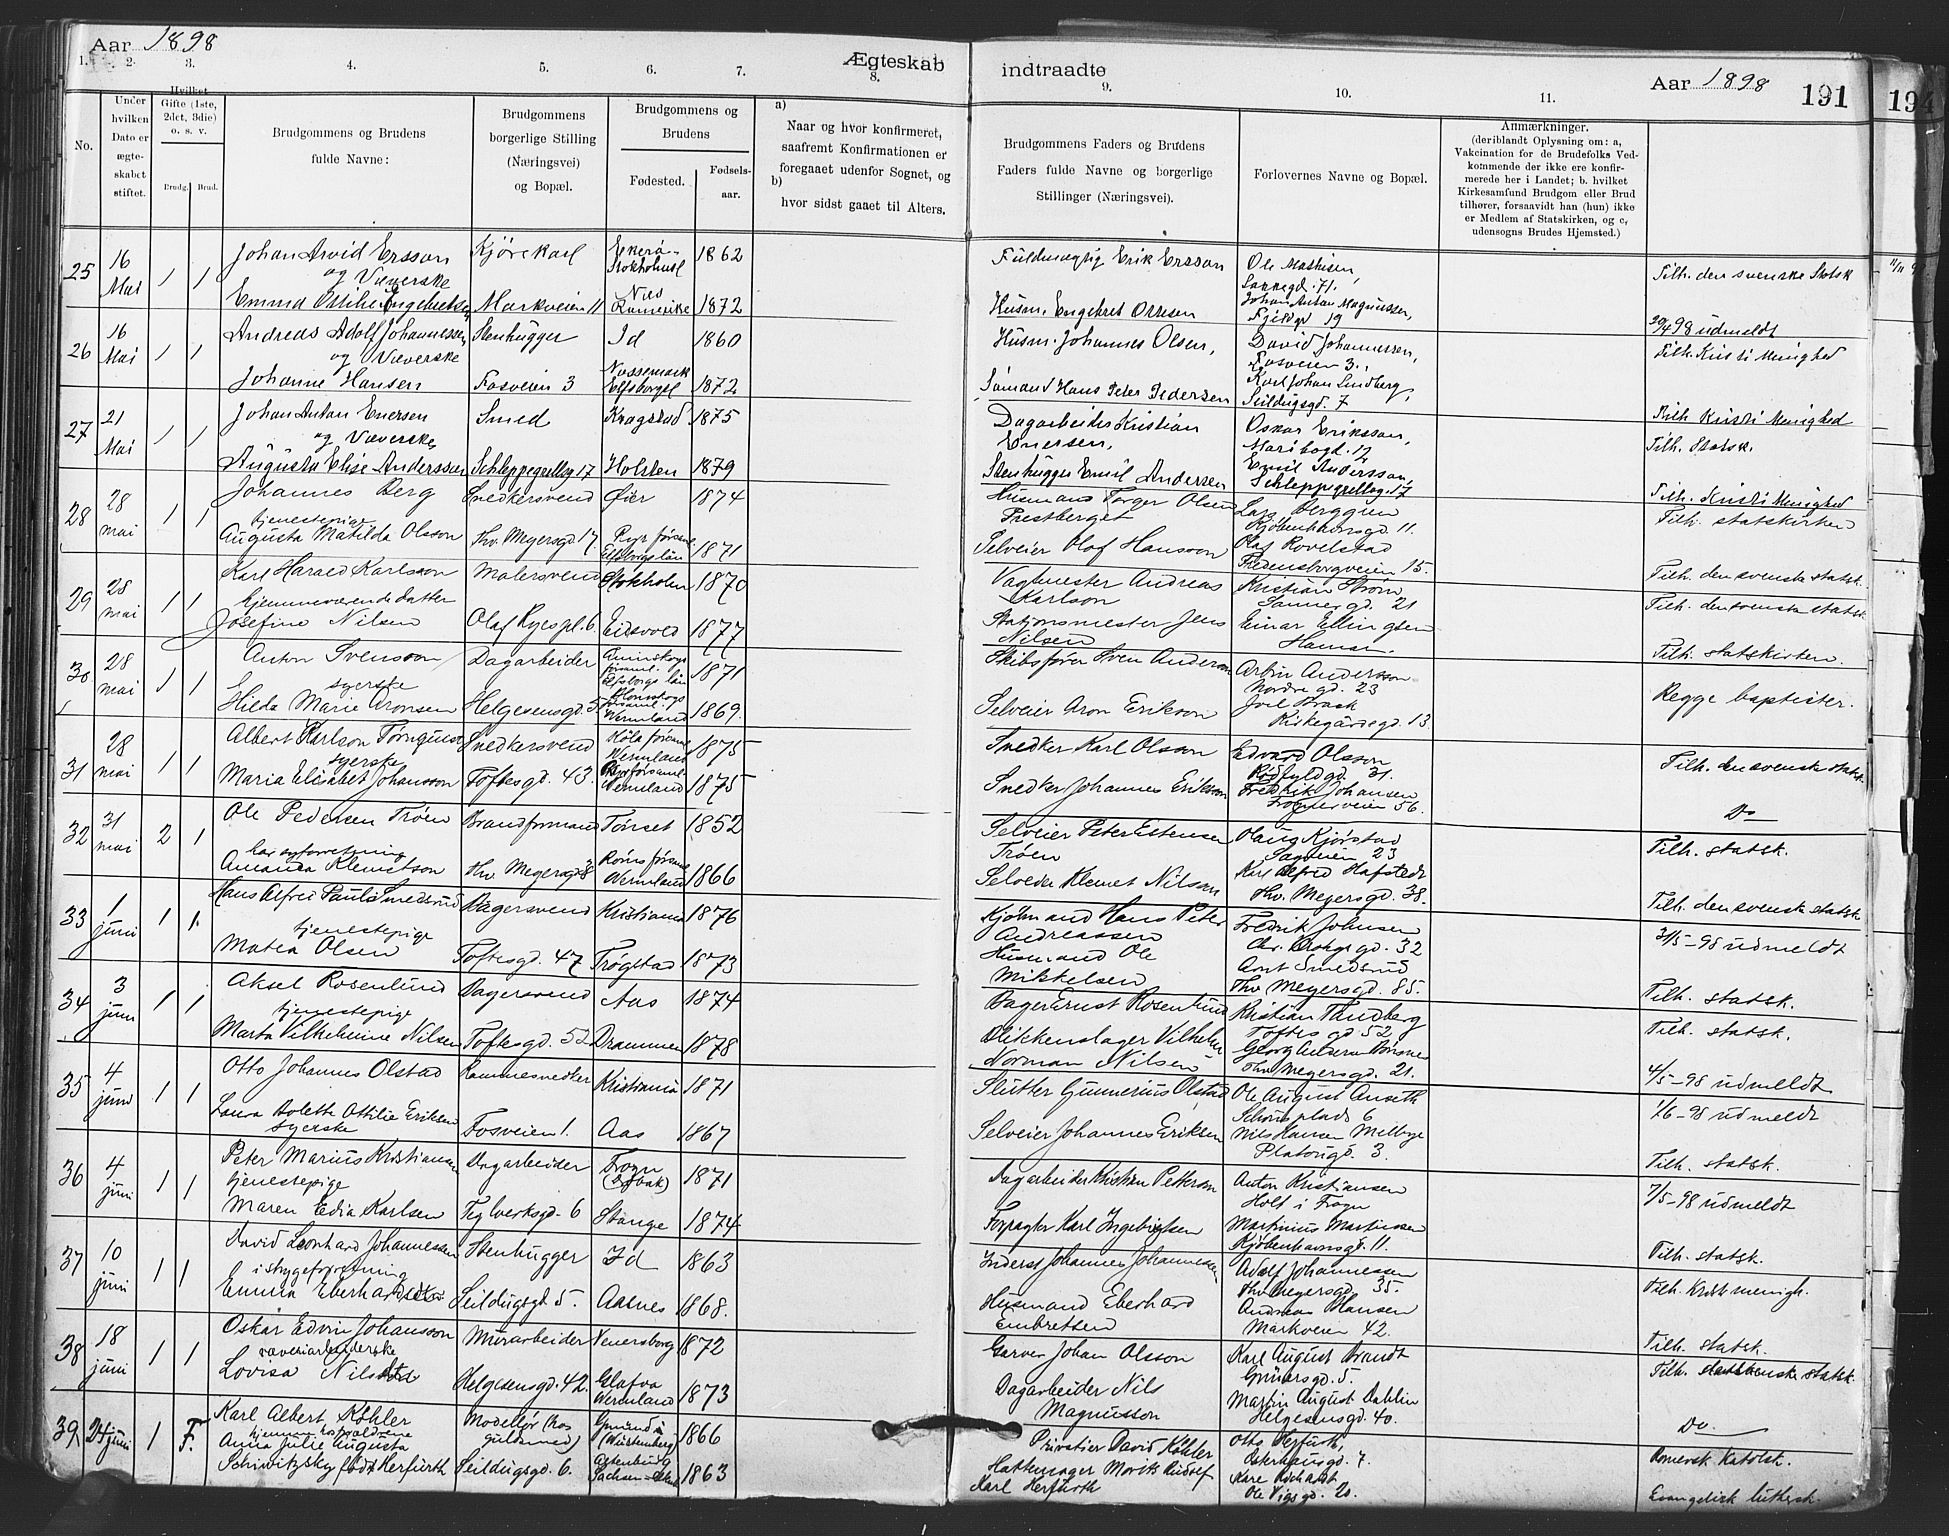 Aar 1898
Ægteskab
indtraadte
Aar 1898
191
194
1. 2. 3. 4. 5. 6. 7. 8. 9. 10. 11.
No.
Under
hvilken
Dato er
ægte-
skabet
stiftet.
Hvilket
Gifte (1ste,
2det, 3die)
o. s. v.
Brudg. Brud.
Brudgommens og Brudens
fulde Navne:
Brudgommens
borgerlige Stilling
(Næringsvei)
og Bopæl.
Brudgommens og
Brudens
Fødested.
Fødsels-
aar.
a)
Naar og hvor konfirmeret,
saafremt Konfirmationen er
foregaaet udenfor Sognet, og
b)
hvor sidst gaaet til Alters.
Brudgommens Faders og Brudens
Faders fulde Navne og borgerlige
Stillinger (Næringsvei).
Forlovernes Navne og Bopæl.
Anmærkninger.
(deriblandt Oplysning om: a,
Vakcination for de Brudefolks Ved-
kommende der ikke ere konfir-
merede her i Landet; b. hvilket
Kirkesamfund Brudgom eller Brud
tilhører, forsaavidt han (hun) ikke
er Medlem af Statskirken, og c,
udensogns Brudes Hjemsted.)
25 16 Mai 1 1
Johan Arvid Ersson Kjørekarl Stokholm 1862
og Væverske
Markveien 11 1872
Fuldmægtig Erik Ersson
Ole Mathisen,
Sannegd. 71.
Johan Anton Magnussen,
19
Tilh. den svenske Statsk
26 16 Mai 1 1
Andreas Adolf Johannessen Stenhugger Id 1860
og Væverske
Johanne Hansen Fosveien 3 1872
Husm. Johannes Olsen,
Hans Peter Pedersen
David Johannessen,
Fosveien 3.,
Karl Johan Lindberg,
Seildugsgd. 7
30/4 98 udmeldt
Tilh. Kristi Menighed
27 21 Mai 1 1
Johan Anton Enersen Smed Kragstad 1875
og Væverske
Augusta Elise Anderssen Schleppegrellsg 17 Holsten 1879
Dagarbeider Kristian
Enersen,
Stenhugger Emil Andersen
Oskar Eriksson,
Maribogd. 12
Emil Andersson,
Schleppegrellsg. 17
Tilh. Kristi Menighed
Tilh. Statsk.
28 28 mai 1 1
Johannes Berg Snedkersvend Øier 1874
tjenestepige
Augusta Matilda Olsson Thv. Meyersgd 17. Elfsborgs län 1871
Husmand Torger Olsen
Prestberget
Selveier Olof Hansson
Lars Berggren
Kjøbenhavnsgd. 11.
Olaf Rovelstad
Fredensborgveien 15.
Tilh. Kristi Menighed
Tilh. statskirken
29 28 mai 1 1
Karl Harald Karlsson Malersvend Stokholm 1870
hjemmeværende datter
Josefine Nilsen Olaf Ryespl. 6. Eidsvold 1877
Vagtmester Andreas
Karlson
Stationsmester Jens
Nilsen
Kristian Strøm
Sannergd. 21
Einar Ellingsen
Hamar.
Tilh. den svenska statsk.
Tilh. den svenska statsk
Tilh. statskirken.
30 28 mai 1 1
Anton Svensson Dagarbeider Elfsborgs län 1871
syerske
Hilda Marie Aronsen Helgesensgd. 5 Wermland 1869.
Skibsfører Sven Anderson
Selveier Aron Erikson
Andersson
Nordregd. 23
Kirkegårdsgd. 13.
Begge baptister.
31 28 mai 1 1
Albert Karlson Snedkersvend Wermland 1875
syerske
Maria Elisabet Johansson Toftesgd. 43. Wermland 1875
Snedker Karl Olsson
Snedker Johannes Erikson
Edvard Olsson
Rødfyldgd. 31.
Fredrik Johansen
Frognerveien 56.
Tilh. den svenska statsk.
Do
32 31 mai 2 1
Ole Pedersen Trøen Brandformand Tønset 1852
har syforretning
Amanda Klemetson Thv. Meyersgd 8 Wermland 1866
Selveier Peter Estensen
Trøen
Selveier Klemet Nilsson
Olaus Kjørstad
Sagveien 23
Karl Alfred Hafstedt
Thv. Meyersgd. 38.
Tilh. statsk.
Tilh. den svenske statsk
33 1 juni 1 1.
Hans Alfred Paulus Smedsrud Bagersvend Kristiania 1876
tjenestepige
Matea Olsen Toftesgd. 47 Trøgstad 1873
Kjøbmand Hans Peter
Andreassen
Husmand Ole
Mikkelsen
Fredrik Johnsen
Chr. Kroghsgd. 32
Arnt Smedsrud
Thv Meyersgd. 85.
31/5-98 udmeldt
Tilh. statsk.
34 3 juni 1 1
Aksel Rosenlund Bagersvend Aas 1874
tjenestepige
Marta Vilhelmine Nilsen Toftesgd. 52 Drammen 1878
Bager Ernst Rosenlund
Blikkenslager Vilhelm
Norman Nilsen
Kristian Thndberg
Toftesgd 52
Thv Meyersgd. 21.
Tilh. statsk.
4/5-98 udmeldt
35 4 juni 1 1
Otto Johannes Olstad Rammesnedker Kristiania 1871
Laura Bolette Ottilie Eriksen
syerske Fosveien 1. Aas 1867
Slutter Gunnerius Olstad
Selveier Johannes Eriksen
Ole August Anseth
Schousplads 6
Nils Hansen Melbye
Platousgd. 3.
1/6-98 udmeldt
Tilh. statsk.
36 4 juni 1 1
Peter Marius Kristiansen Dagarbeider Frogn (Drøbak) 1871
tjenestepige
Maren Edia Karlsen Teglverksgd. 6 Stange 1874
Dagarbeider Kristian Petterson
Forpagter Karl Ingebrigtsen
Anton Kristiansen
Holt i Frogn
Martinius Martinssen
Kjøbenhavnsgd. 11.
7/5-98 udmeldt
Tilh. statsk.
37 10 juni 1 1
David Leonhard Johannessen Stenhugger Id 1863
i strygeforretning
Emma Eberhardsen Seildugsgd 5. Aasnes 1868.
Inderst Johannes Johannessen
Husmand Eberhard
Embretsen
Adolf Johannessen
Thv Meyersgd. 35.
Andreas Hansen
Markveien 42.
Tilh. Kristi menigh.
Tilh. statsk.
38 18 juni 1 1
Oskar Edvin Johansson Murarbeider Venersborg 1872
væveriarbeiderske
Lovisa Helgesensgd. 42. Glafva Wermland 1873
Garver Johan Olsson
Dagarbeider Nils
Magnusson
Karl August Brandt
Grünersgd. 5.
Martin August Dahlin
Helgesensgd. 40.
Tilh. svenske statsk.
Do
39 24 juni 1 F.
Karl Albert Köhler Modellør (hos guldsmed) Gmünd i (Würtemberg) 1866
Anna Julie Augusta
Schiwitzsky født Herfurth Seildugsgd. 6. Altenburg 1863
Privatier David Köhler
Hattemager Morik Rudolf
Karl Herfurth
Otto Herfurth,
Osterhausgd. 7.
Ole Vigsgd. 20.
Romersk Katolsk.
Evangelisk luthersk.